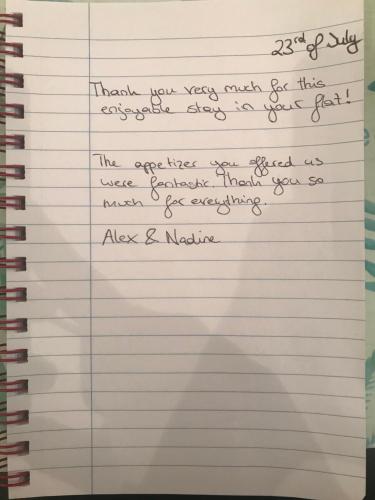 23rd of July
Thank you very much for this
enjoyable stay in your flat!
The appetizer you offered us
were fantastic. Thank you so
much for everything.
Alex & Nadine